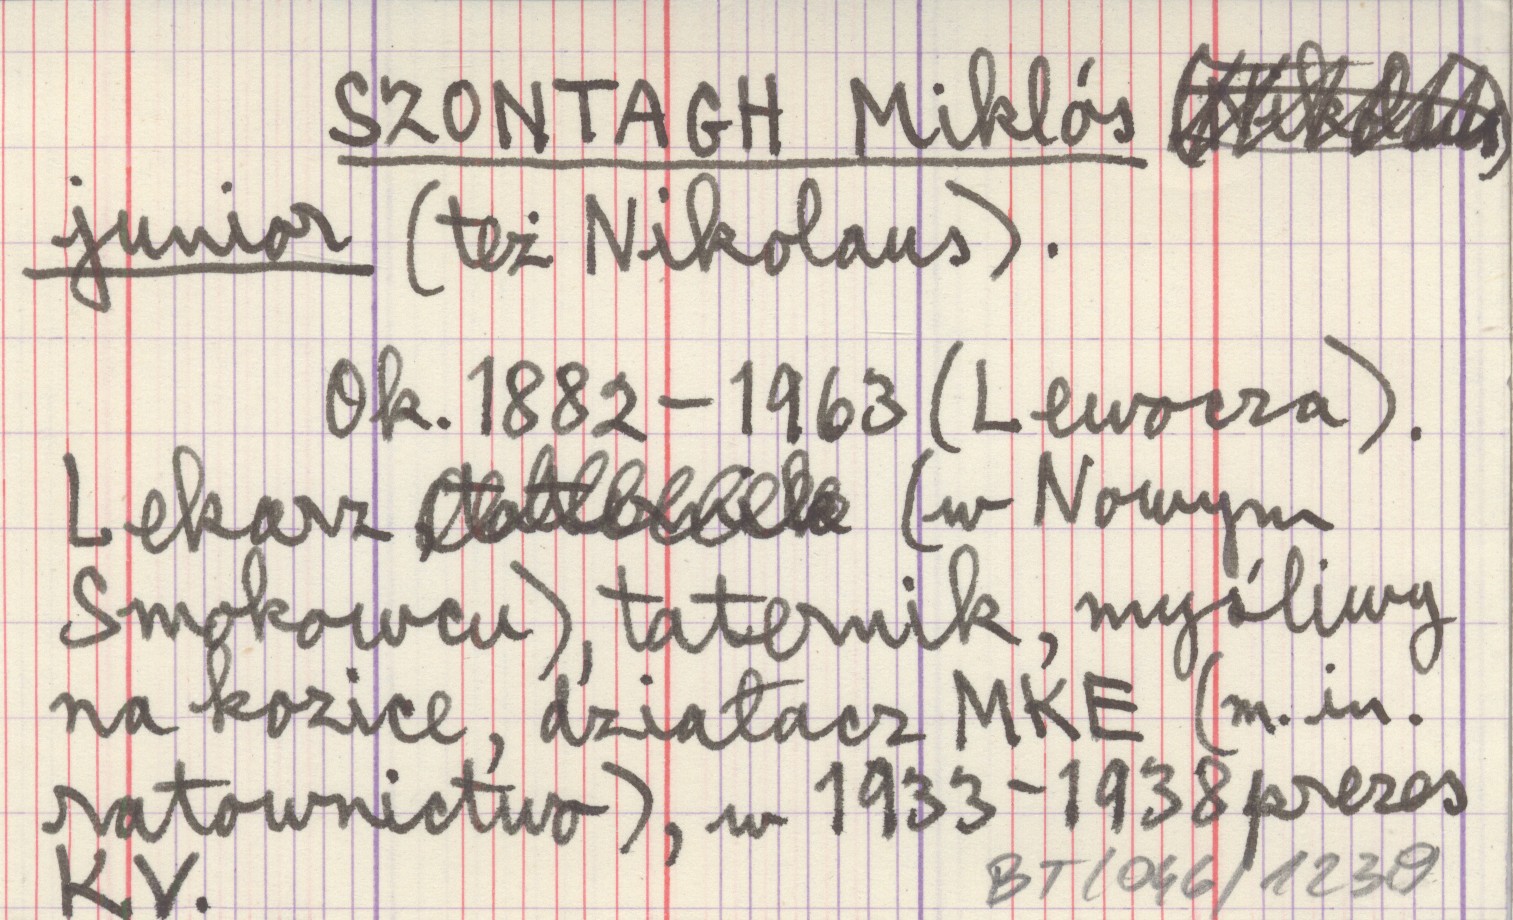 SZONTAGH Miklós
junior (też Nikolaus).
Ok. 1882-1963 (Lewocza).
Lekarz (w Nowym
Smokowcu), taternik, myśliwy
na kozice, działacz MKE (m.in.
ratownictwo), w 1933-1938 prezes
KV.
BT/046/1239